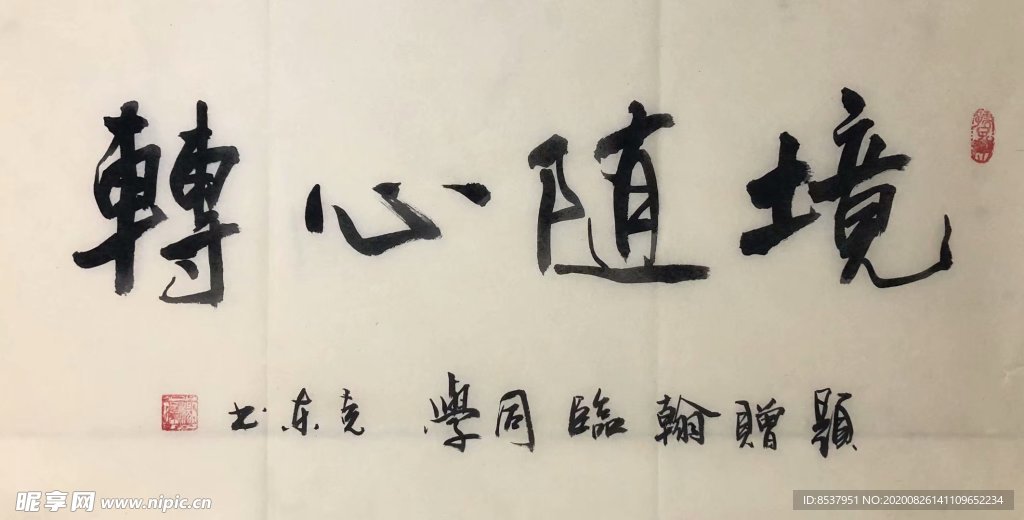 境随心轉
題贈翰臨同學 尭东书
昵享网 www.nipic.cn
ID:8537951 NO:20200826141109652234